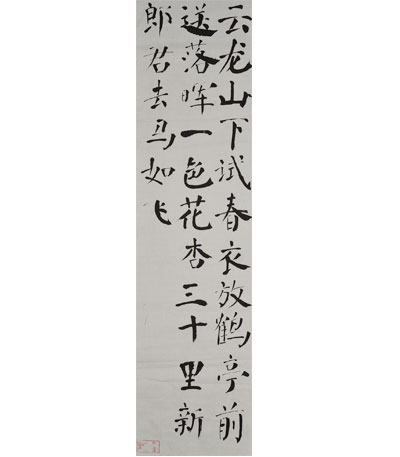 云龙山下试春衣放鹤亭前
送落晖一色花杏三十里新
郎君去马如飞